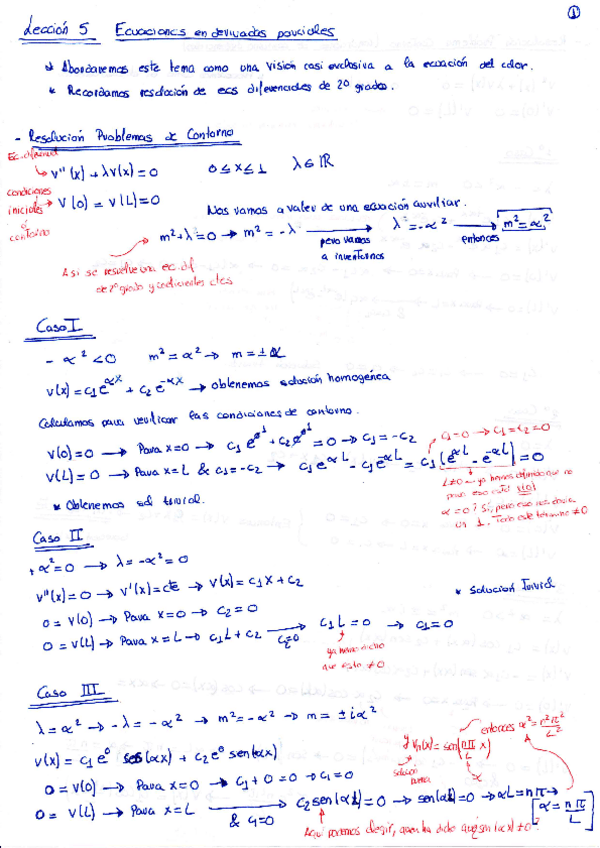 ①
Lección 5 Ecuaciones en derivadas parciales
* Abordaremos este tema como una visión casi exclusiva a la ecuación del calor.
* Recordamos resolución de ecs diferenciales de 2º grado.
- Resolución Problemas de Contorno
Ec. diferencial
v''(x) + λv(x) = 0 0 ≤ x ≤ 1 λ ∈ ℝ
condiciones iniciales o contorno
v(0) = v(L) = 0
Nos vamos a valer de una ecuación auxiliar.
m² + λ = 0 → m² = -λ → pero vamos a inventarnos λ = -α² → entonces m² = α²
Así se resuelve una ec. dif
de 2º grado y coeficientes ctes
Caso I
- α² < 0 m² = α² → m = ± α
v(x) = c₁e^αx + c₂e^-αx → obtenemos solución homogénea
Calculamos para verificar las condiciones de contorno.
v(0) = 0 → Para x=0 → c₁e⁰ + c₂e⁰ = 0 → c₁ = -c₂
c₁=0 → c₁=c₂=0
v(L) = 0 → Para x=L & c₁=-c₂ → c₁e^αL - c₁e^-αL = c₁(e^αL - e^-αL) = 0
L≠0 ya hemos definido que no
α = 0? Sí, pero eso nos
un 1. Todo este término ≠ 0
* Obtenemos sol trivial.
Caso II
+ α² = 0 → λ = -α² = 0
v''(x) = 0 → v'(x) = cte → v(x) = c₁x + c₂
* Solución trivial
0 = v(0) → Para x=0 → c₂ = 0
0 = v(L) → Para x=L → c₁L + c₂ → c₂=0 c₁L = 0 → c₁ = 0
ya hemos dicho
que esto ≠ 0
Caso III
λ = α² → -λ = -α² → m² = -α² → m = ± iα²
v(x) = c₁e⁰ cos(αx) + c₂e⁰ sen(αx)
y vₙ(x) = sen(nπ/L x)
entonces α² = n²π²/L²
solución buena
α
0 = v(0) → Para x=0 → c₁ + 0 = 0 → c₁ = 0
0 = v(L) → Para x=L → & c₁=0 c₂ sen(αL) = 0 → sen(αL) = 0 → αL = nπ → α = nπ/L
Aquí podemos elegir, quien ha dicho que sen(αx) ≠ 0?